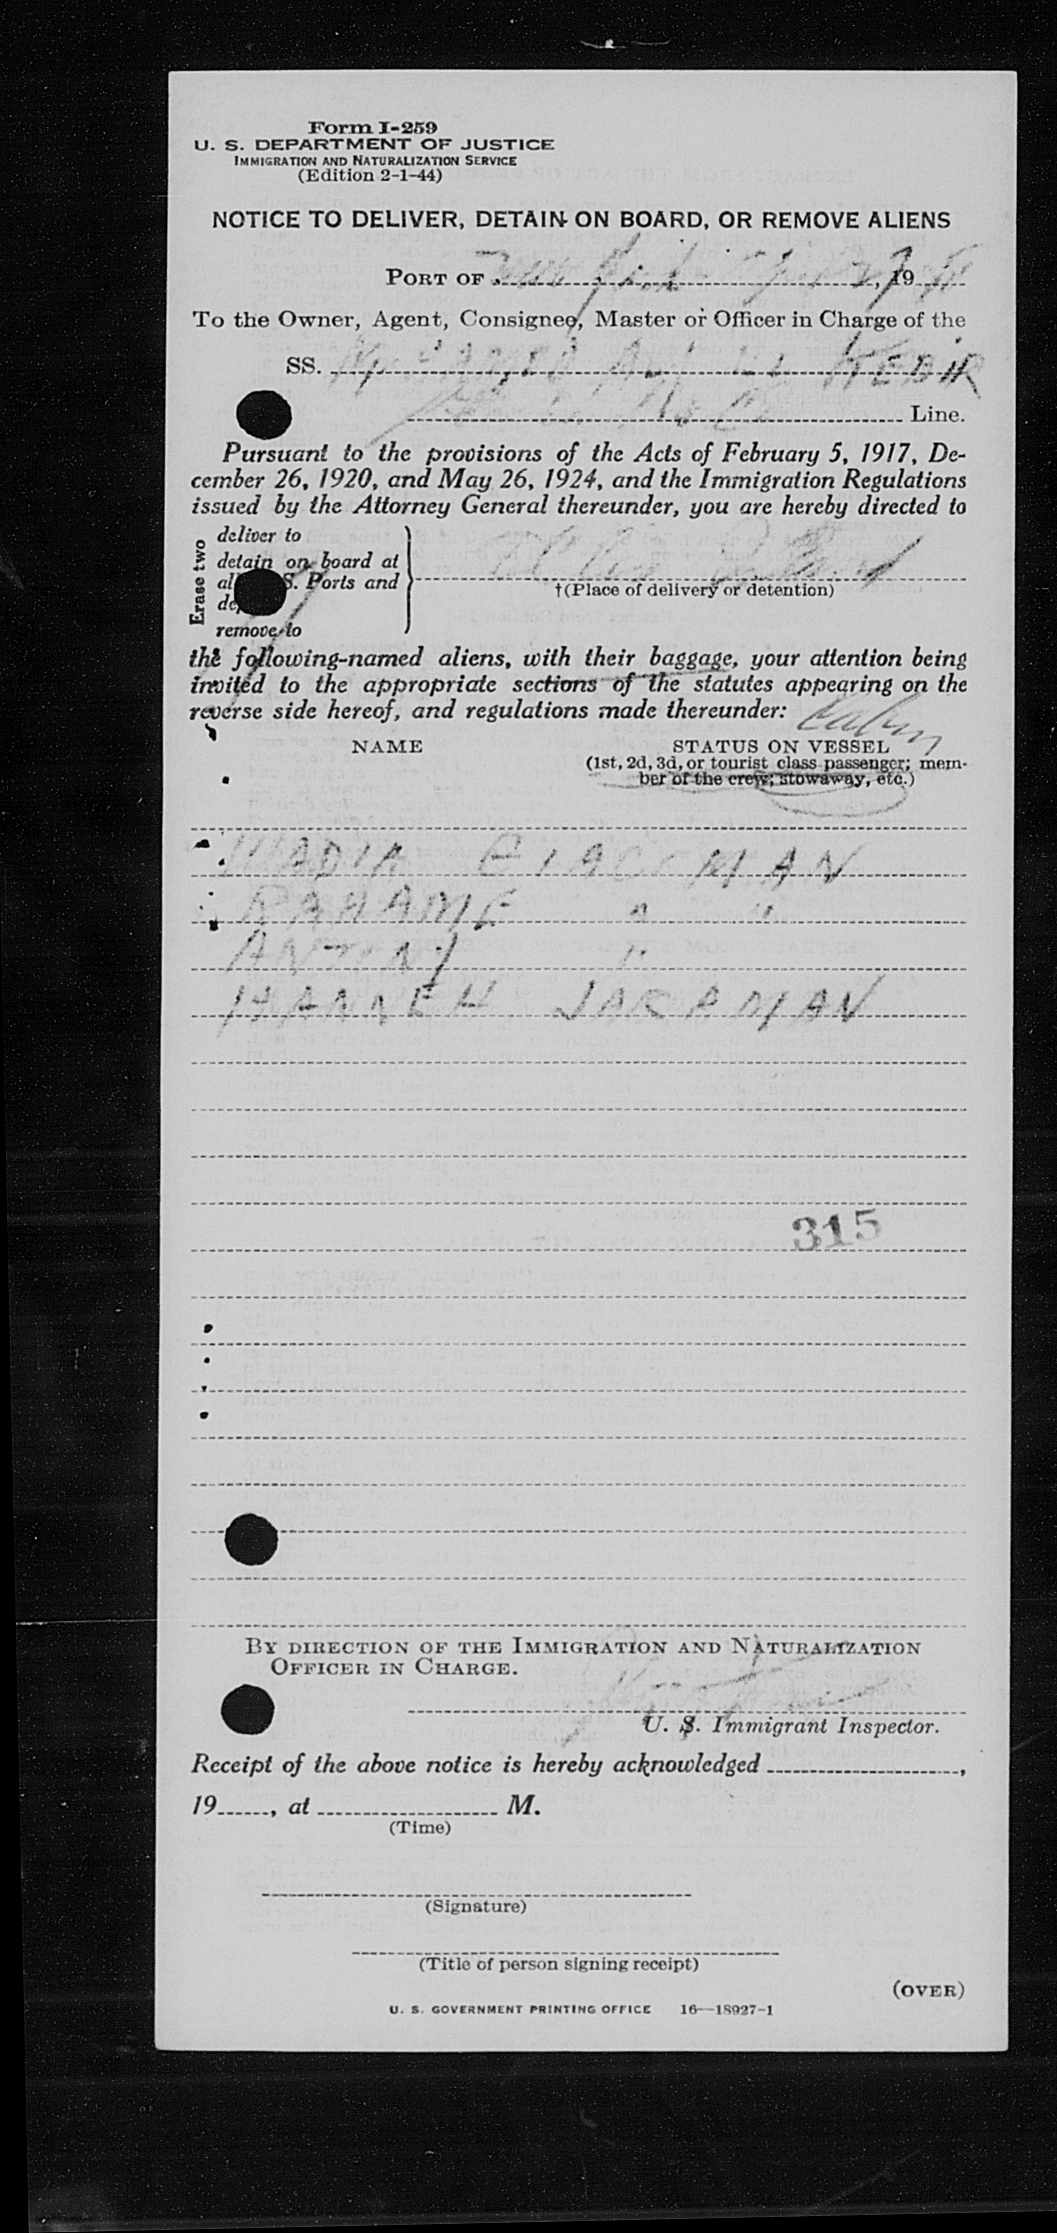 Form I-259
U. S. DEPARTMENT OF JUSTICE
IMMIGRATION AND NATURALIZATION SERVICE
(Edition 2-1-44)
NOTICE TO DELIVER, DETAIN ON BOARD, OR REMOVE ALIENS
PORT OF New York 27, 19
To the Owner, Agent, Consignee, Master or Officer in Charge of the
SS. MOHAMED ALI EL KEBIR
Line.
Pursuant to the provisions of the Acts of February 5, 1917, De-
cember 26, 1920, and May 26, 1924, and the Immigration Regulations
issued by the Attorney General thereunder, you are hereby directed to
Erase two
deliver to
detain on board at
all S. Ports and
remove to
†(Place of delivery or detention)
the following-named aliens, with their baggage, your attention being
invited to the appropriate sections of the statutes appearing on the
reverse side hereof, and regulations made thereunder:
Cabin
NAME STATUS ON VESSEL
(1st, 2d, 3d, or tourist class passenger; mem-
ber of the crew; stowaway, etc.)
WADIA
RAHAME " "
ANTONY "
HANNEH JARAMAN
315
BY DIRECTION OF THE IMMIGRATION AND NATURALIZATION
OFFICER IN CHARGE.
U. S. Immigrant Inspector.
Receipt of the above notice is hereby acknowledged ,
19 , at M.
(Time)
(Signature)
(Title of person signing receipt)
(OVER)
U. S. GOVERNMENT PRINTING OFFICE 16—18927-1